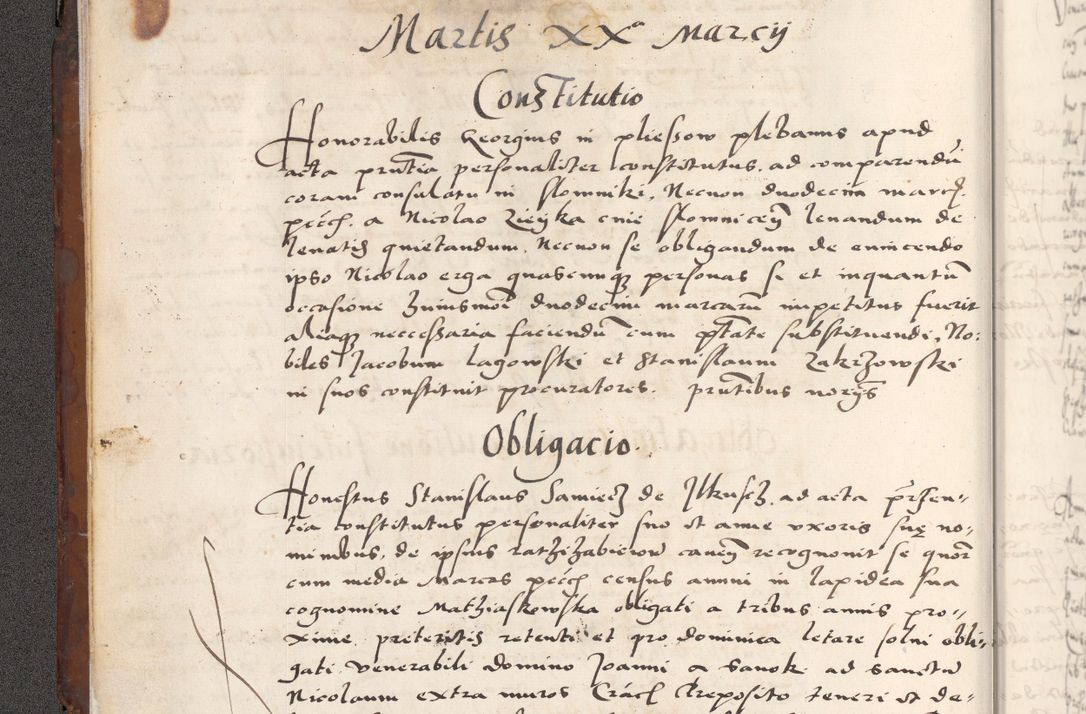 Martis xxa Marcij
Constitutio
Honorabilis Georgius in pliessow plebanus apud
acta prntia personaliter constitutus, ad comparendu
coram consulatu in slomniki, Necnon duodecim marc
pecch. a Nicolao Zieyka cive slomnicen levandum de
levatis quietandum, Necnon se obligandum de evincendo
ipso Nicolao erga quascunque personas se et inquantum
occasione huiusmoi duodecim marcaru impetitus fuerit
aliaque neccessaria faciendu cum ptate substituendi, No-
biles Jacobum lagowski et Stanislaum Zakrzowski
in suos constituit procuratores. prntibus norys
Obligacio
Honestus Stanislaus Samiecz de Ilkusch, ad acta prsen-
tia constitutus personaliter suo et anne uxoris suę no-
minibus, de ipsius ratzizabierow canen recognovit se quor
cum media Marcas pecch census annui in lapidea sua
cognomine Mathiaskowska obligati a tribus annis pro-
xime preteritis retenti et pro dominica letare solvi obli-
gati venerabili domino Joanni a Sanok ad sanctu
Nicolaum extra muros Crac Preposito teneri et de-